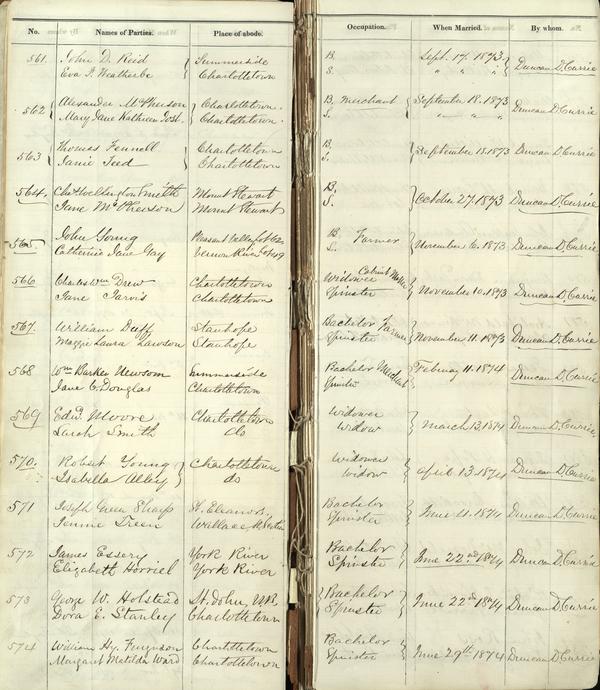 No. Names of Parties. Place of abode. Occupation. When Married. By whom.
561 John D. Reid Summerside B. Sept. 17. 1873 Duncan D. Currie
Eva J. Weatherbe Charlottetown S. " " "
562 Alexander McPherson Charlottetown. B. Merchant September 18. 1873 Duncan D. Currie
Mary Jane Kathleen Charlottetown. S. " "
563 Thomas Fennell Charlottetown B. September 18. 1873 Duncan D. Currie
Janie Teed Charlottetown S.
564. Chas Wellington Smith Mount Stewart B. October 27. 1873 Duncan D. Currie
Jane McPherson Mount Stewart S.
565. John Young Pleasant Valley Lot B. Farmer November 6. 1873 Duncan D. Currie
Catherine Jane Gay Vernon River Lot 49 S.
566 Charles Wm Drew Charlottetown Widower Cabinet Maker November 10. 1873 Duncan D. Currie
Jane Jarvis Charlottetown Spinster
567. William Duff Stanhope Bachelor Farmer November 11. 1873 Duncan D. Currie
Maggie Laura Lawson Stanhope Spinster
568 Wm Barker Newsom Summerside Bachelor Merchant February 11. 1874 Duncan D. Currie
Jane C. Douglas Charlottetown Spinster
569 Edwd. Moore Charlottetown Widower March 13. 1874 Duncan D. Currie
Sarah Smith do Widow
570. Robert Young Charlottetown Widower April 13. 1874 Duncan D. Currie
Isabella Alley do Widow
571 Joseph Green Sharp St. Eleanors. Bachelor June 4. 1874 Duncan D. Currie
Jennie Treen Wallace Spinster
572 James Essery York River Bachelor June 22nd 1874 Duncan D. Currie
Elizabeth York River Spinster
573 George W. Holstead St. John, N.B. Bachelor June 22nd 1874 Duncan D. Currie
Dora E. Stanley Charlottetown Spinster
574 William Hy. Ferguson Charlottetown Bachelor June 29th 1874 Duncan D. Currie
Margaret Matilda Ward Charlottetown Spinster